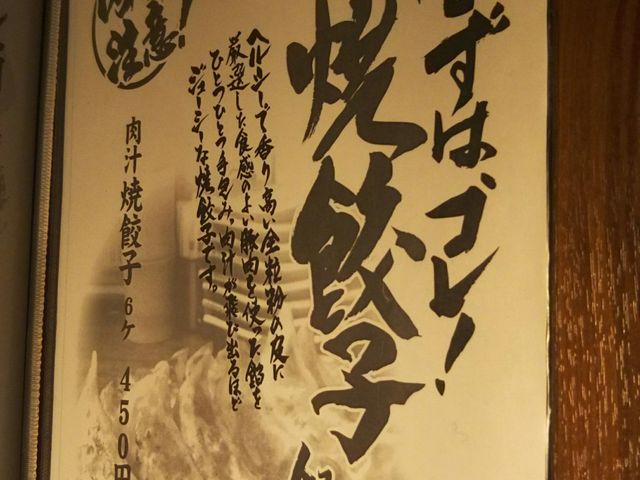 ずは、コレ!
焼餃子
ヘルシーで香り高い全粒粉の皮に
厳選した食感のよい豚肉を使った餡を
ひとつひとつ手包み。肉汁が飛び出るほど
ジューシーな焼餃子です。
注意!
肉汁焼餃子 6ヶ 450円